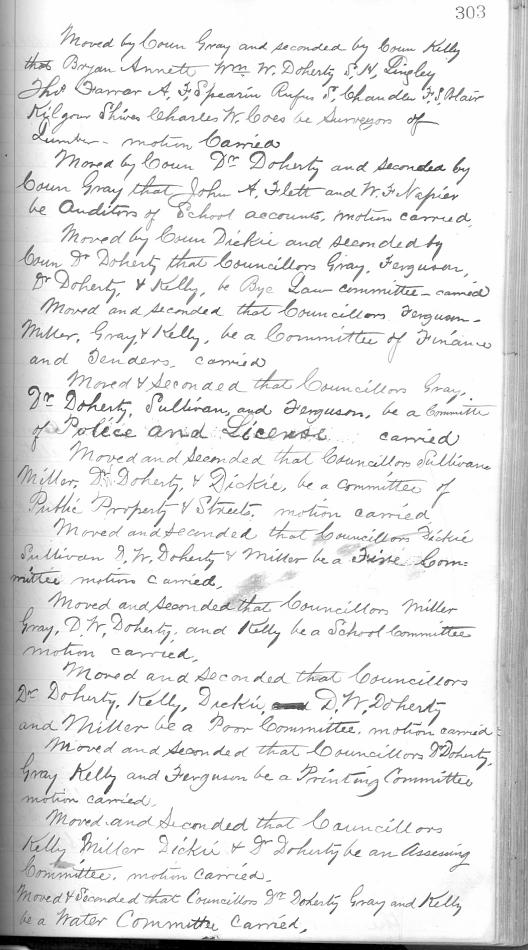 303
Moved by Coun Gray and seconded by Coun Kelly
that Bryan Annett Wm W. Doherty S. N, Lingley
Thos Farrar A. F, Spearin Rufus S, Chandler F. S, Blair
Kilgour Shives Charles W. Coes be Surveyors of
Lumber - motion Carried
Moved by Coun Dr Doherty and seconded by
Coun Gray that John A. Flett and W. F. Napier
be Auditors of School accounts, motion carried,
Moved by Coun Dickie and seconded by
Coun Dr Doherty that Councillors Gray, Ferguson,
Dr Doherty, & Kelly, be Bye Law committee - carried
Moved and seconded that Councillors Ferguson -
Miller, Gray, & Kelly, be a Committee of Finance
and Tenders, carried
Moved & seconded that Councillors Gray,
Dr Doherty, Sullivan, and Ferguson, be a Committe
of Police and License carried
Moved and seconded that Councillors Sullivan
Miller, Dr Doherty, & Dickie, be a committee of
Public Property & Streets, motion carried
Moved and seconded that Councillors Dickie
Sullivan D, W. Doherty & Miller be a Fire Com=
mittee motion carried,
Moved and seconded that Councillors Miller
Gray, D. W, Doherty, and Kelly be a School Committee
motion carried,
Moved and seconded that Councillors
Dr Doherty, Kelly, Dickie, and D. W. Doherty
and Miller be a Poor Committee, motion carried
Moved and seconded that Councillors Dr Doherty,
Gray Kelly and Ferguson be a Printing Committee
motion carried,
Moved and seconded that Councillors
Kelly Miller Dickie & Dr Doherty be an Assessing
Committee, motion carried.
Moved & Seconded that Councillors Dr Doherty Gray and Kelly
be a Water Committee Carried,